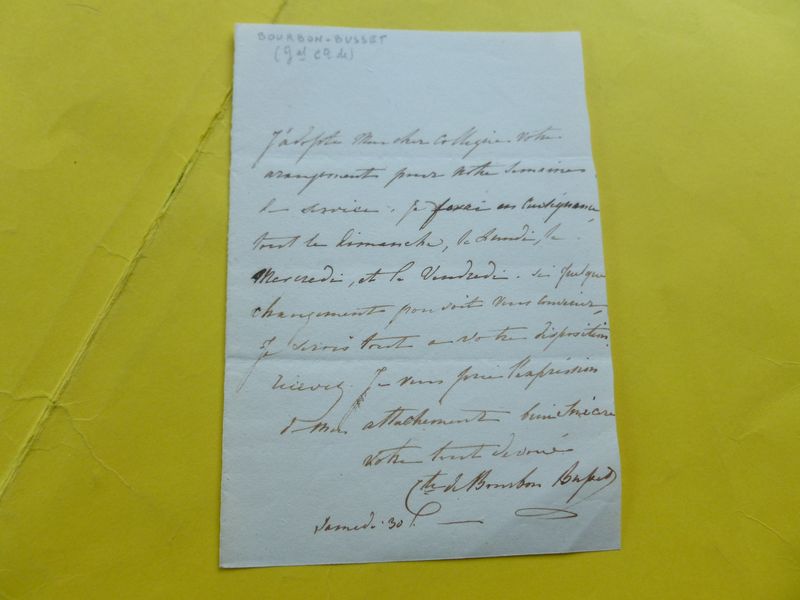 BOURBON-BUSSET
(gal cte de)
J'adopte Mon cher Collègue votre
arangement pour notre Semaine
de service. Je ferai en conséquence
tout le dimanche, le Lundi, le
Mercredi, et le Vendredi. si quelque
changement pouvoit vous convenir
je serois tout a votre disposition
recevez Je vous prie l'expréssion
de mon attachement bien Sincère
votre tout devoué
Cte de Bourbon Busset
Samedi 30